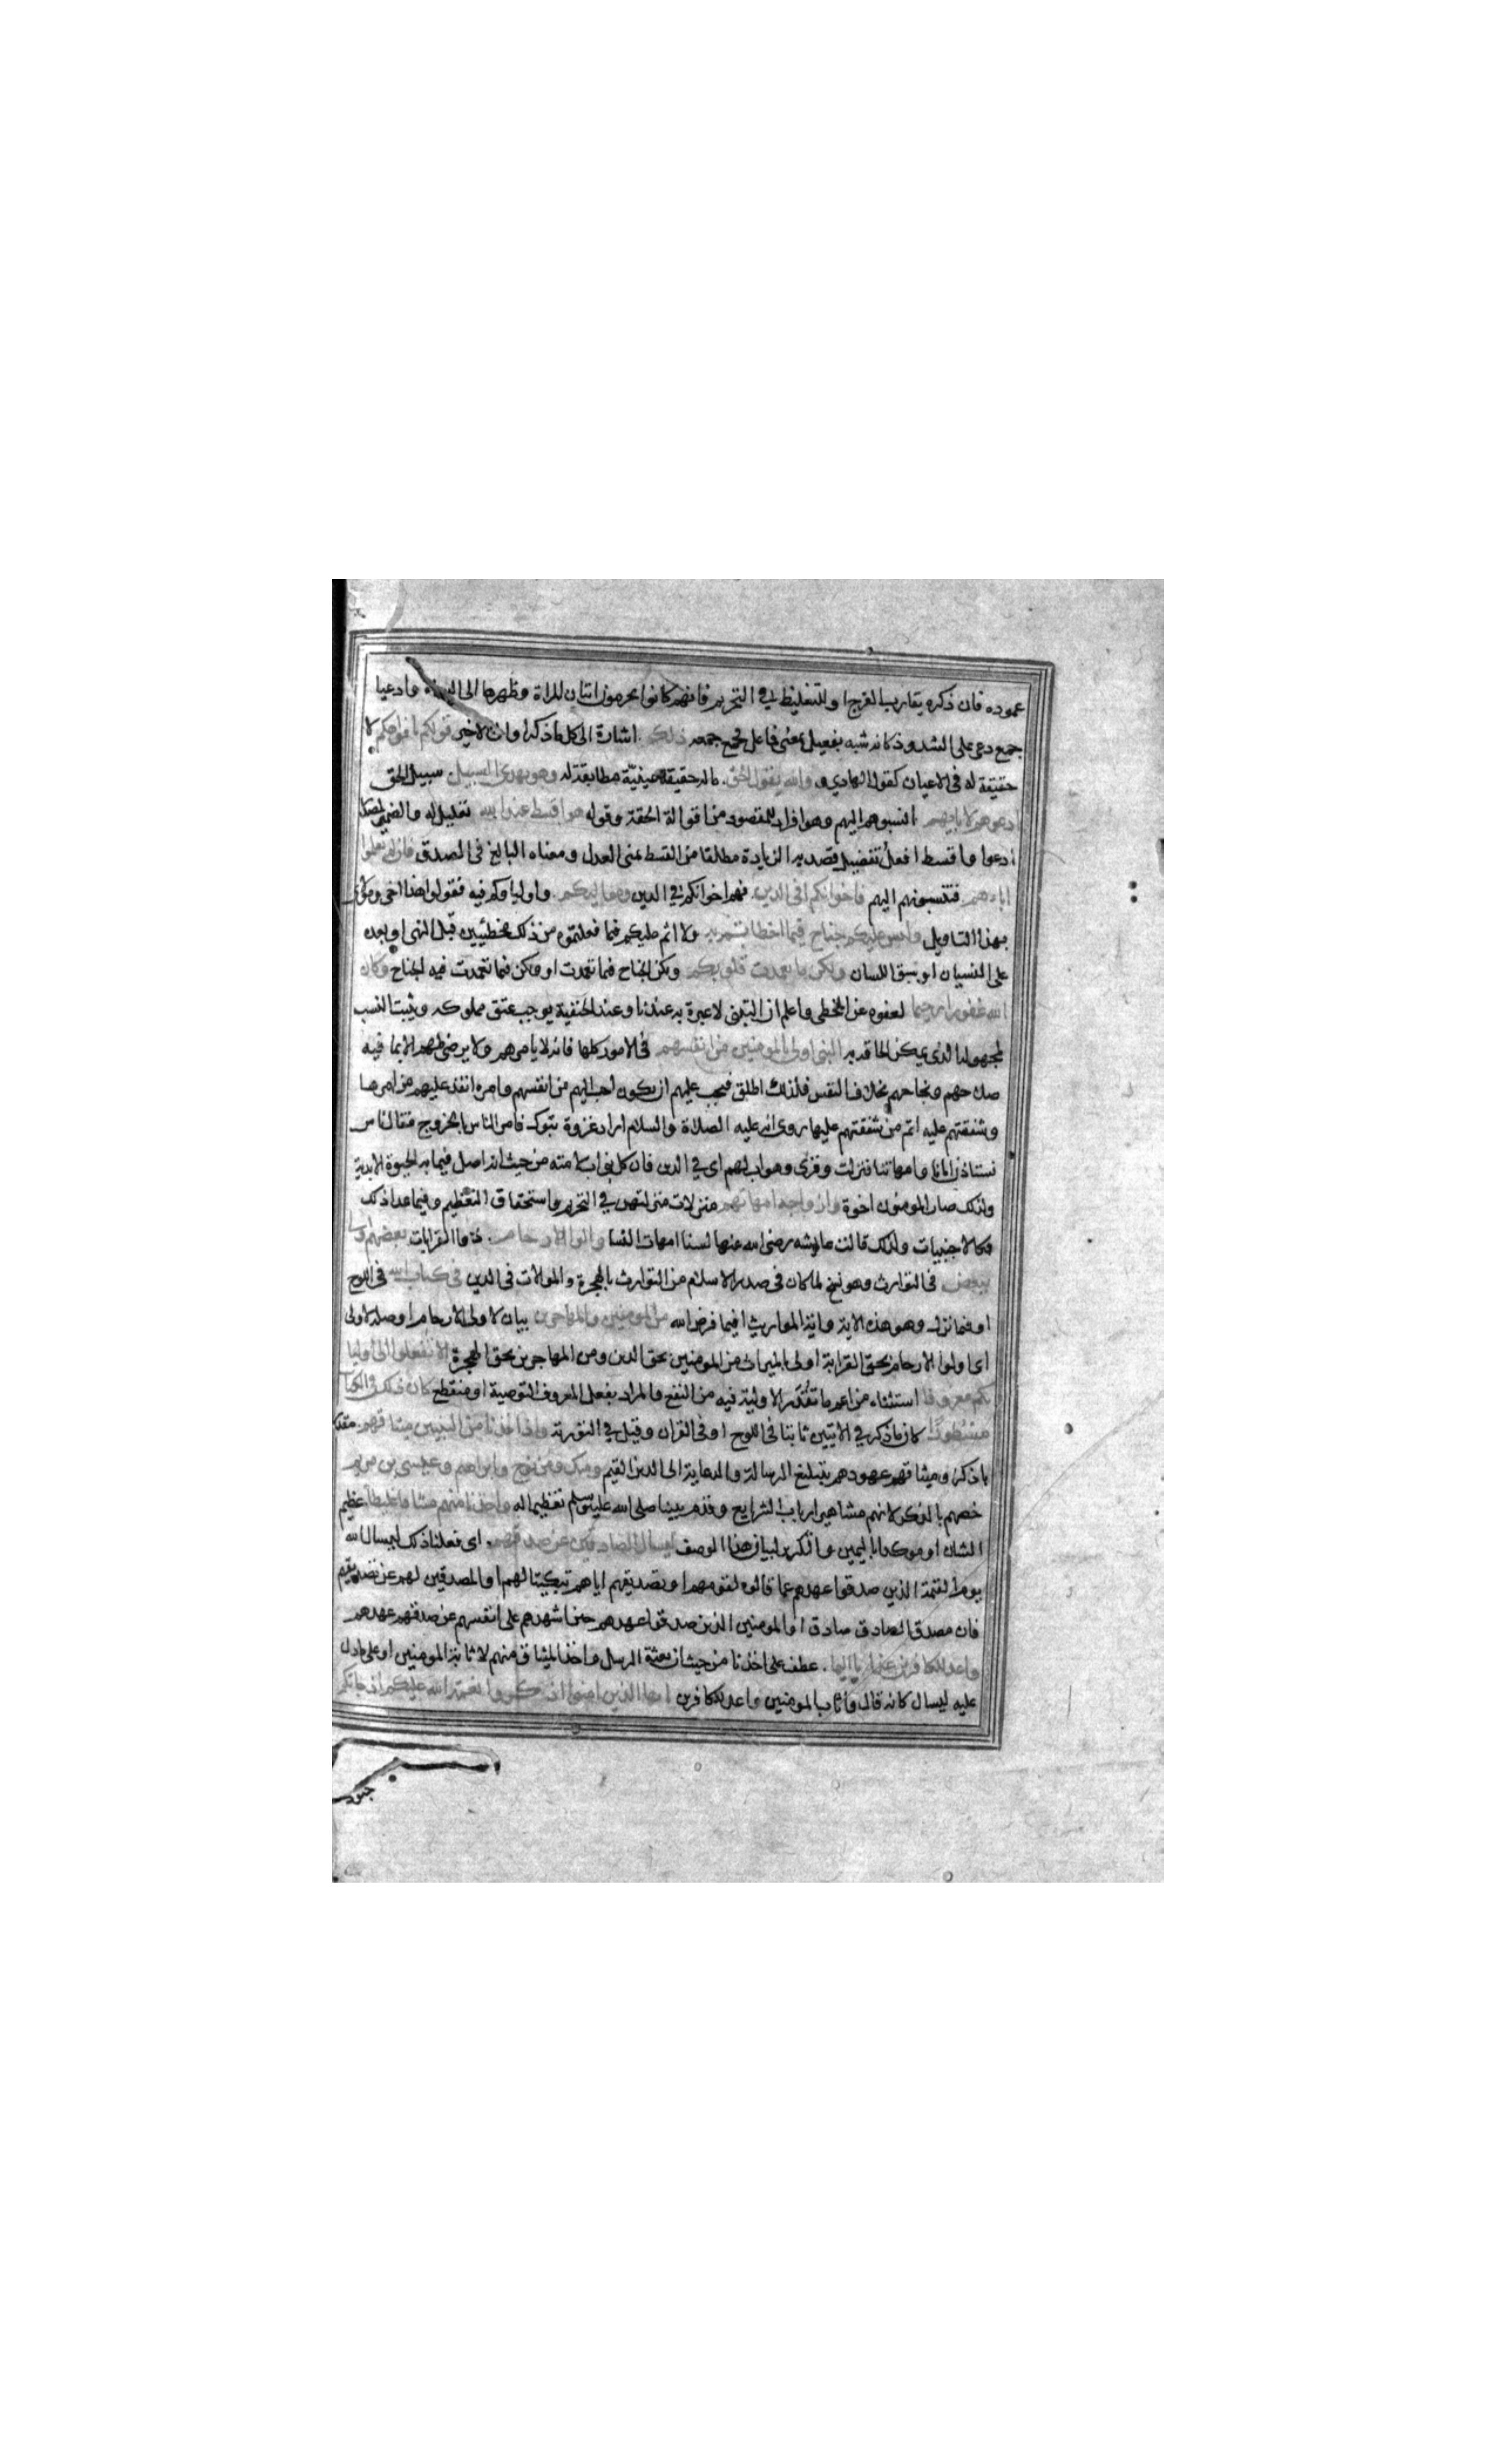 عموده فان ذكره يقارب الفرج او للتغليظ في التحريم فانهم كانوا يحرمون اتيان المراة وظهرها الى السماء وادعيا
جمع دعى على الشذوذ كانه شبه بفعيل بمعنى فاعل فجمع جمعه ذلكم اشارة الى كل ما ذكر او الى الاخير قولكم بافواهكم لا
حقيقة له في الاعيان كقول الهاذي والله يقول الحق ماله حقيقة عينيّة مطابقة له وهو يهدى السبيل سبيل الحق
ادعوهم لابايهم انسبوهم اليهم وهو افراد للمقصود من اقواله الحقة وقوله هو اقسط عند الله تعليل له والضمير لمصدر
ادعوا واقسط افعل تفضيل قصد به الزيادة مطلقا من القسط بمعنى العدل ومعناه البالغ في الصدق فان لم تعلموا
اباءهم فتنسبونهم اليهم فاخوانكم في الدين فهم اخوانكم في الدين ومواليكم واولياوكم فيه فقولوا هذا اخى ومولى
بهذا التاويل وليس عليكم جناح فيما اخطاتم به ولا اثم عليكم فيما فعلتموه من ذلك مخطئين قبل النهى او بعده
على النسيان او سبق اللسان ولكن ما تعمدت قلوبكم ولكن الجناح فيما تعمدت او ولكن فيما تعمدت فيه الجناح وكان
الله غفورا رحيما لعفوه عن المخطى واعلم ان التبنى لا عبرة به عندنا وعند الحنفية يوجب عتق مملوكه ويثبت النسب
لمجهوله الذى يمكن الحاقه به النبى اولى بالمومنين من انفسهم في الامور كلها فانه لا يامرهم ولا يرضى منهم الا بما فيه
صلاحهم ونجاحهم بخلاف النفس فلذلك اطلق فيجب عليهم ان يكون احب اليهم من انفسهم وامره انفذ عليهم من امرها
وشفقتهم عليه اتم من شفقتهم عليها روى انه عليه الصلاة والسلام اراد غزوة تبوك فامر الناس بالخروج فقال ناس
نستاذن اباءنا وامهاتنا فنزلت وقرى وهو اب لهم اى في الدين فان كل نبى اب لامته من حيث انه اصل فيما به الحيوة الابدية
ولذلك صار المومنون اخوة وازواجه امهاتهم منزلات منزلتهن في التحريم واستحقاق التعظيم وفيما عدا ذلك
فكالاجنبيات ولذلك قالت عايشه رضى الله عنها لسنا امهات النسا والوا الارحام ذووا القرابات بعضهم اولى
ببعض في التوارث وهو نسخ لما كان في صدر الاسلام من التوارث بالهجرة والموالات في الدين في كتاب الله في اللوح
او فيما نزل وهو هذه الاية واية المواريث او فيما فرض الله من المومنين والمهاجرين بيان لاولى الارحام او صلة لاولى
اى اولوا الارحام بحق القرابة اولى بالميراث من المومنين بحق الدين ومن المهاجرين بحق الهجرة الا ان تفعلوا الى اوليا
ئكم معروفا استثناء من اعم ما تقدّر الاولية فيه من النفع والمراد بفعل المعروف التوصية او منقطع كان ذلك في الكتاب
مسطورًا كان ما ذكر في الايتين ثابتا في اللوح او في القران وقيل في التورية واذ اخذنا من النبيين ميثاقهم مقدر
باذكر وميثاقهم عهودهم بتبليغ الرسالة والدعاية الى الدين القيم ومنك ومن نوح وابراهيم وعيسى بن مريم
خصهم بالذكر لانهم مشاهير ارباب الشرايع وقدم نبينا صلى الله عليه وسلم تعظيما له واخذنا منهم ميثاقا غليظا عظيم
الشان او موكدا باليمين والتكرير لبيان هذا الوصف ليسال الصادقين عن صدقهم اى فعلنا ذلك ليسال الله
يوم القيمة الذين صدقوا عهدهم عما قالوه لقومهم او تصديقهم اياهم تبكيتا لهم او المصدقين لهم عن تصديقهم
فان مصدق الصادق صادق او المومنين الذين صدقوا عهدهم حين اشهدهم على انفسهم عن صدقهم عهدهم
واعد للكافرين عذابا اليما عطف على اخذنا من حيث ان بعثة الرسل واخذ الميثاق منهم لاثابة المومنين او على ما دل
عليه ليسال كانه قال فاثاب المومنين واعد للكافرين ايها الذين امنوا اذكروا نعمة الله عليكم اذ جاتكم
جنود